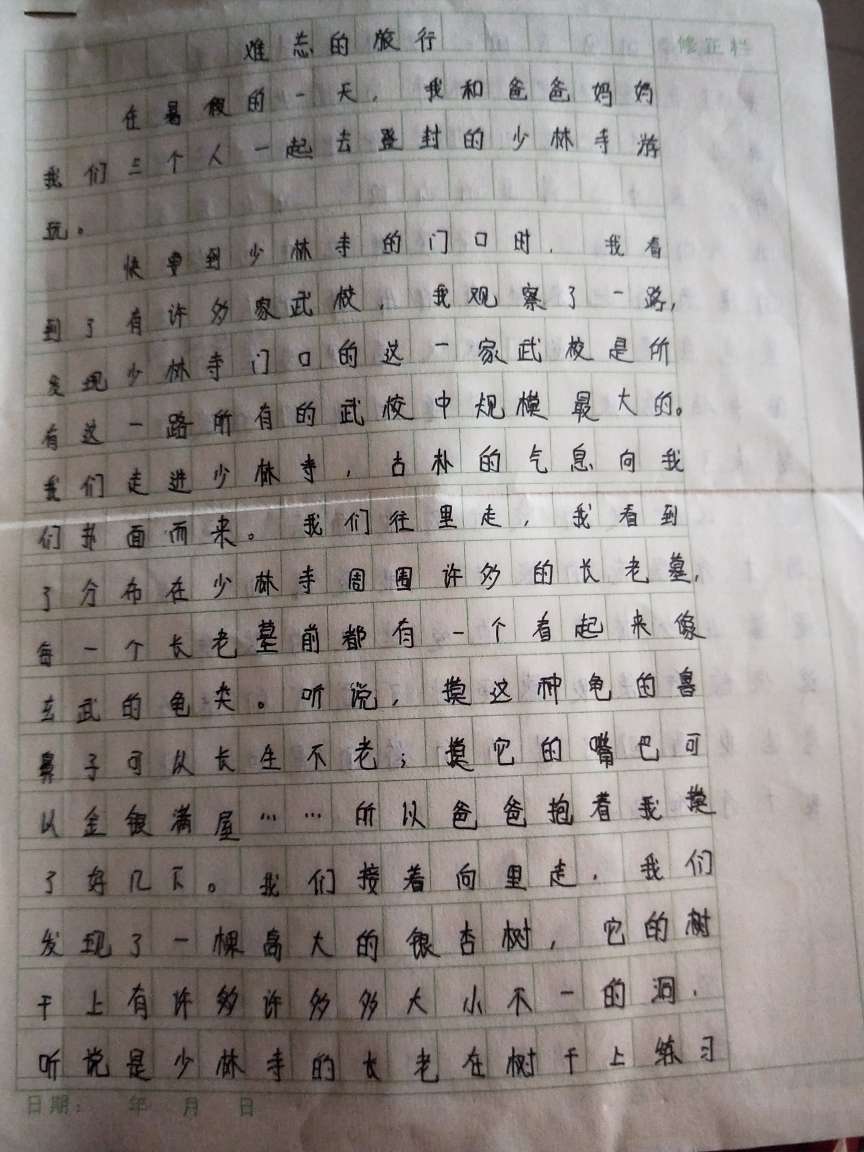 难忘的旅行
修正栏
在暑假的一天，我和爸爸妈妈
我们三个人一起去登封的少林寺游
玩。
快要到少林寺的门口时，我看
到了有许多家武校，我观察了一路，
发现少林寺门口的这一家武校是所
有这一路所有的武校中规模最大的。
我们走进少林寺，古朴的气息向我
们扑面而来。我们往里走，我看到
了分布在少林寺周围许多的长老墓，
每一个长老墓前都有一个看起来像
玄武的龟类。听说，摸这种龟的鼻
鼻子可以长生不老；摸它的嘴巴可
以金银满屋……所以爸爸抱着我摸
了好几下。我们接着向里走，我们
发现了一棵高大的银杏树，它的树
干上有许多许多多大小不一的洞，
听说是少林寺的长老在树干上练习
日期： 年 月 日